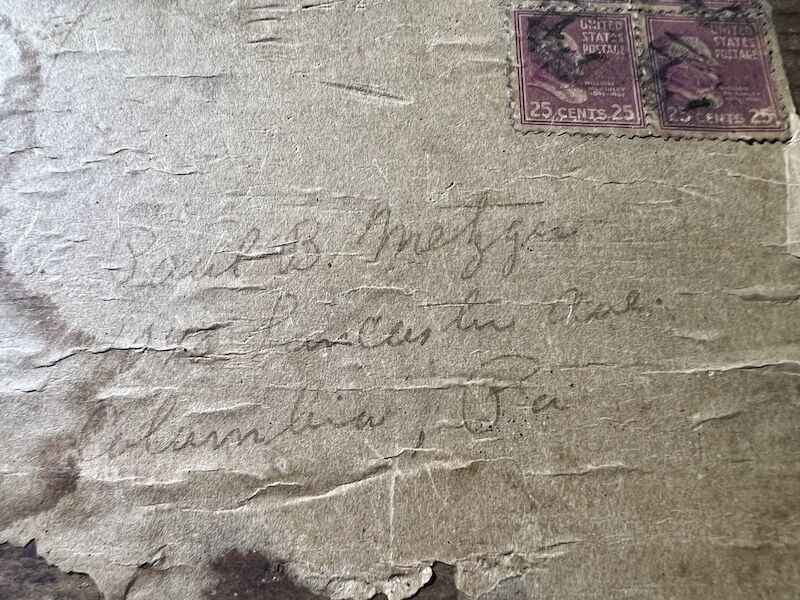 UNITED STATES POSTAGE
WILLIAM McKINLEY
1897-1901
25 CENTS 25
UNITED STATES POSTAGE
25 CENTS 25
Paul B Metzger
Lancaster Ave.
Columbia, Pa